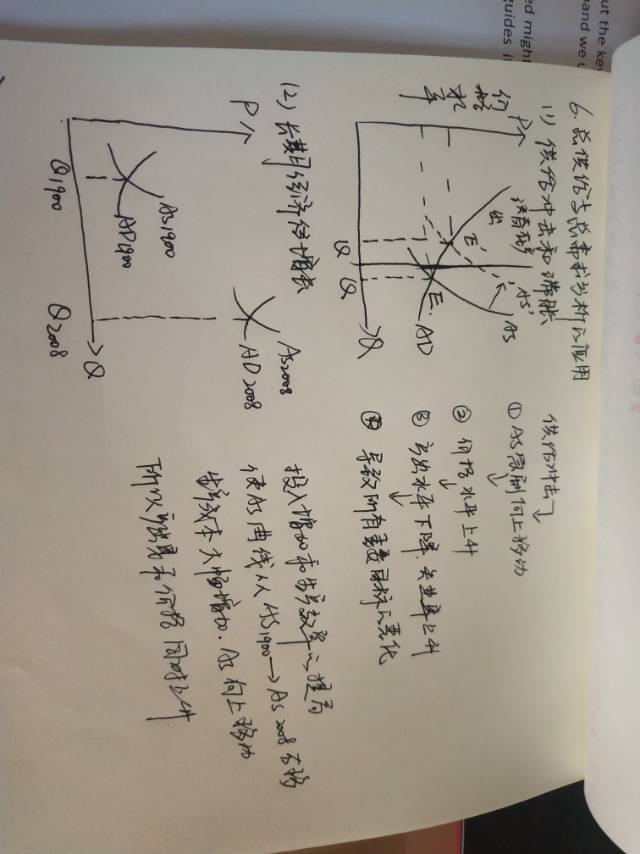 6. 总供给与总需求分析的应用
(1) 供给冲击和滞胀
P
价格水平
潜在产出
AS'
AS
E'
E
AD
Q' Q
Q
供给冲击
① AS急剧向上移动
② 价格水平上升
③ 产出水平下降、失业率上升
④ 导致所有主要目标的恶化
(2) 长期经济增长
P
AS1900
AD1900
AS2008
AD2008
Q1900
Q2008
Q
投入增加和生产效率的提高
使AS曲线从AS1900→AS2008右移
生产成本大幅增加. AS向上移动
所以产出和价格同时上升
ut the key
and we u
ed might
uides i